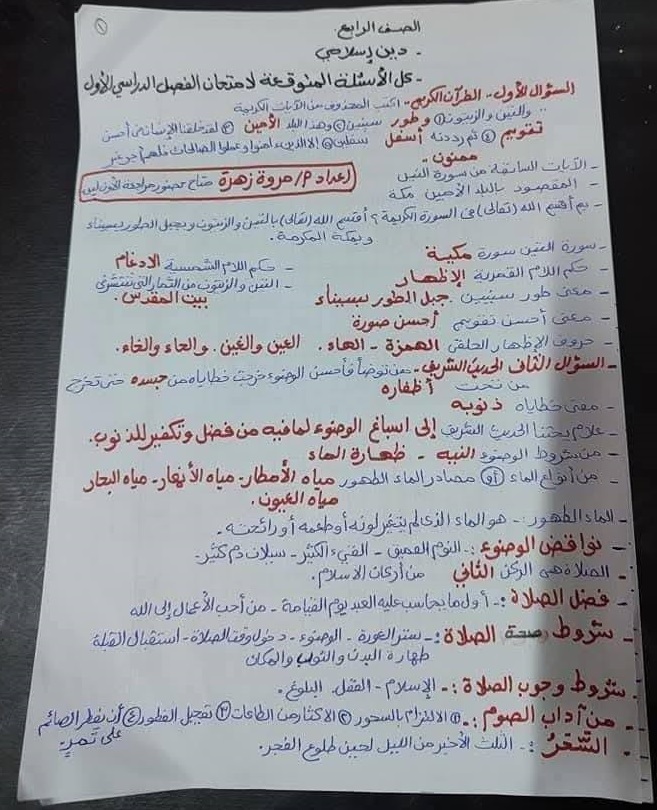 ١
الصف الرابع
- دين إسلامي
- كل الأسئلة المتوقعة لامتحان الفصل الدراسي الأول
السؤال الأول - القرآن الكريم - اكتب المحذوف من الآيات الكريمة
" والتين والزيتون ① وطور سينين ② وهذا البلد الأمين ③ لقد خلقنا الإنسان في أحسن
تقويم ④ ثم رددنه أسفل سفلين ⑤ إلا الذين ءامنوا وعملوا الصالحات فلهم أجر غير
ممنون "
- الآيات السابقة من سورة التين
إعداد م/ مروة زهرة متاح حضور مراجعة
- المقصود بالبلد الأمين مكة
- بم أقسم الله (تعالى) في السورة الكريمة؟ أقسم الله (تعالى) بالتين والزيتون وبجبل الطور بسيناء
وبمكة المكرمة.
- سورة التين سورة مكية
- حكم اللام الشمسية الإدغام
- حكم اللام القمرية الإظهار
- التين والزيتون من الثمار التي تنتشر في
بيت المقدس.
- معنى طور سينين جبل الطور بسيناء
- معنى أحسن تقويم أحسن صورة
- حروف الإظهار الحلقي الهمزة - الهاء. العين والغين. والحاء والخاء.
- السؤال الثاني الحديث الشريف - من توضأ فأحسن الوضوء خرجت خطاياه من جسده حتى تخرج
من تحت أظفاره
- معنى خطاياه ذنوبه
- علام يحثنا الحديث الشريف إلى اسباغ الوضوء لما فيه من فضل وتكفير للذنوب.
- من شروط الوضوء النيه - طهارة الماء
- من أنواع الماء أو مصادر الماء الطهور مياه الأمطار - مياه الأنهار - مياه البحار
مياه العيون.
- الماء الطهور :- هو الماء الذى لم يتغير لونه أو طعمه أو رائحته.
- نواقض الوضوء :- النوم العميق - القيء الكثير - سيلان دم كثير.
- الصلاة هى الركن الثاني من أركان الاسلام.
- فضل الصلاة :- أول ما يحاسب عليه العبد يوم القيامة - من أحب الأعمال إلى الله
- شروط صحة الصلاة :- ستر العورة - الوضوء - دخول وقت الصلاة - استقبال القبلة
طهارة البدن والثوب والمكان
- شروط وجوب الصلاة :- الإسلام - العقل البلوغ.
- من آداب الصوم :- ① الالتزام بالسحور ② الاكثار من الطاعات ③ تعجيل الفطور ④ أن يفطر الصائم
على تمر -
- السَّحَرُ :- الثلث الأخير من الليل لحين طلوع الفجر.